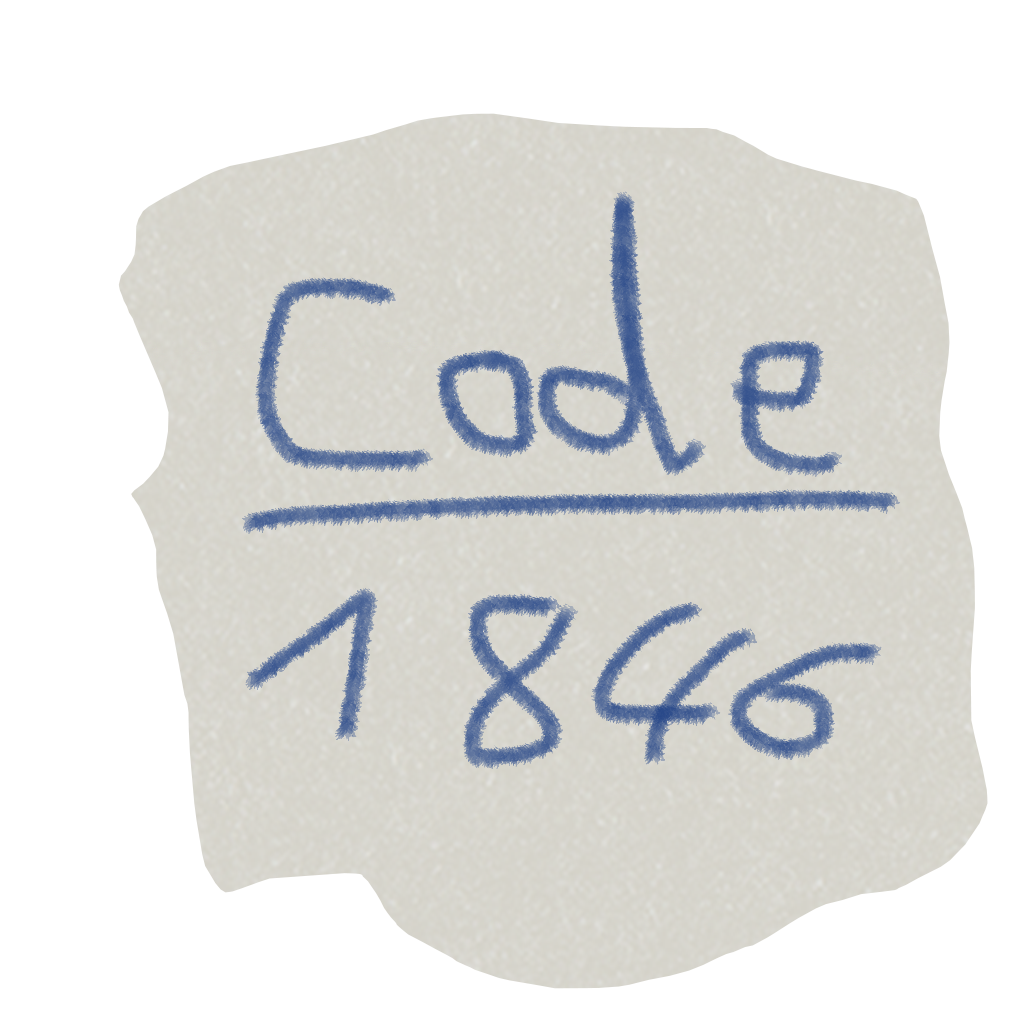 Code
1846